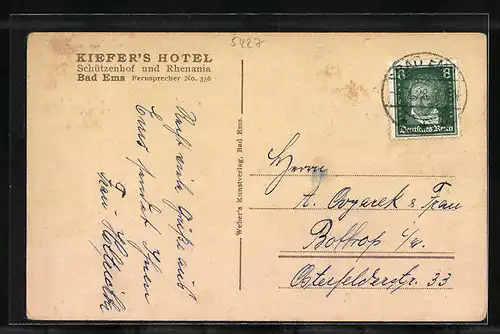 5427
KIEFER'S HOTEL
Schützenhof und Rhenania
Bad Ems Fernsprecher No. 356
BAD EMS
8 8
Deutsches Reich
Recht viele Grüße aus
Ems sendet Ihnen
Frau
Weber's Kunstverlag, Bad Ems.
Herrn
A. Frau
Bottrop i/w.
Osterfelderstr. 33